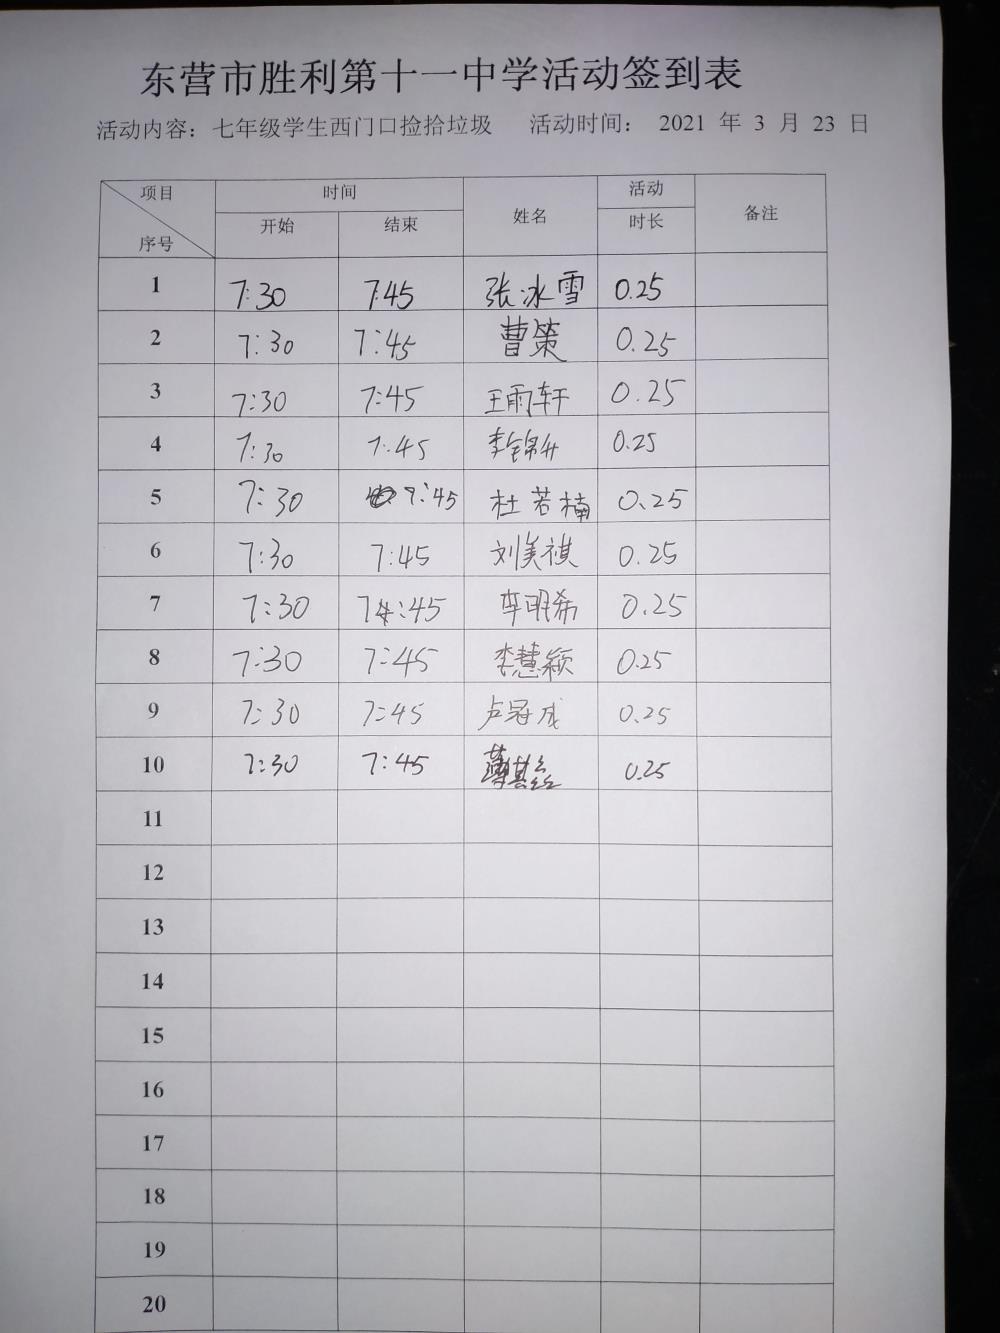 东营市胜利第十一中学活动签到表
活动内容：七年级学生西门口捡拾垃圾 活动时间： 2021 年 3 月 23 日
项目 时间 姓名 活动 备注
序号 开始 结束 时长
1 7:30 7:45 张冰雪 0.25
2 7:30 7:45 曹策 0.25
3 7:30 7:45 王雨轩 0.25
4 7:30 7:45 李锦升 0.25
5 7:30 7:45 杜若楠 0.25
6 7:30 7:45 刘美祺 0.25
7 7:30 7:45 李明希 0.25
8 7:30 7:45 李慧颖 0.25
9 7:30 7:45 卢冠成 0.25
10 7:30 7:45 0.25
11
12
13
14
15
16
17
18
19
20